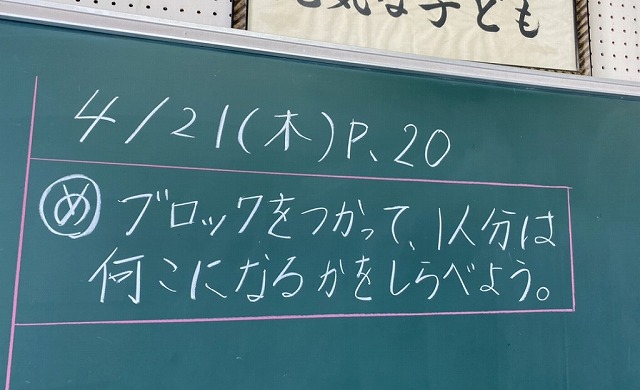 元気な子ども
4/21(木)P、20
め ブロックをつかって、1人分は
何こになるかをしらべよう。